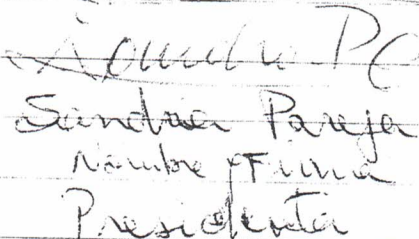 Sandra Pareja
Nombre y Firma
Presidenta